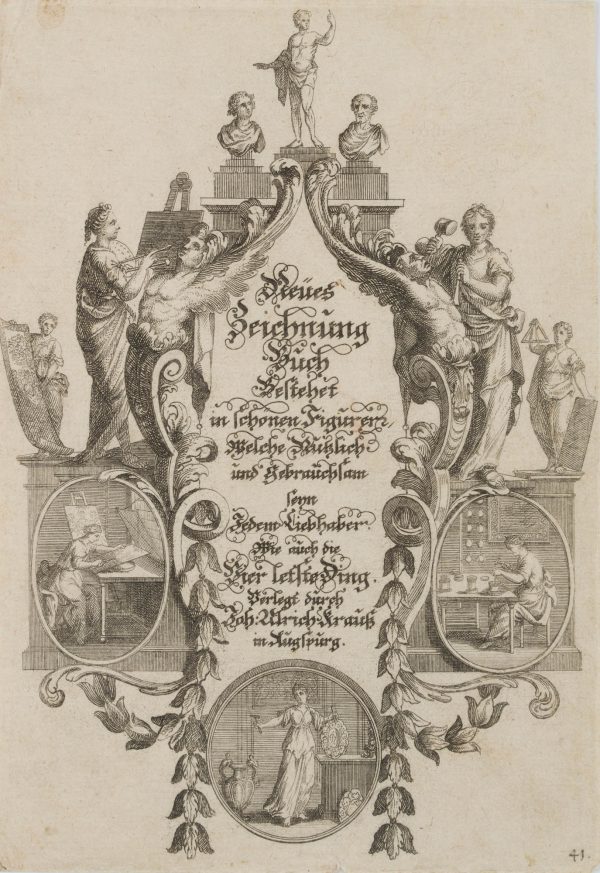 Neües
Zeichnung
Buch
Bestehet
in schönen Figuren,
Welche Nützlich
und Gebrauchsam
seyn
Jedem Liebhaber.
Wie auch die
Vier letste Ding.
Verlegt durch
Joh: Ulrich Krauß
in Augspurg.
41.